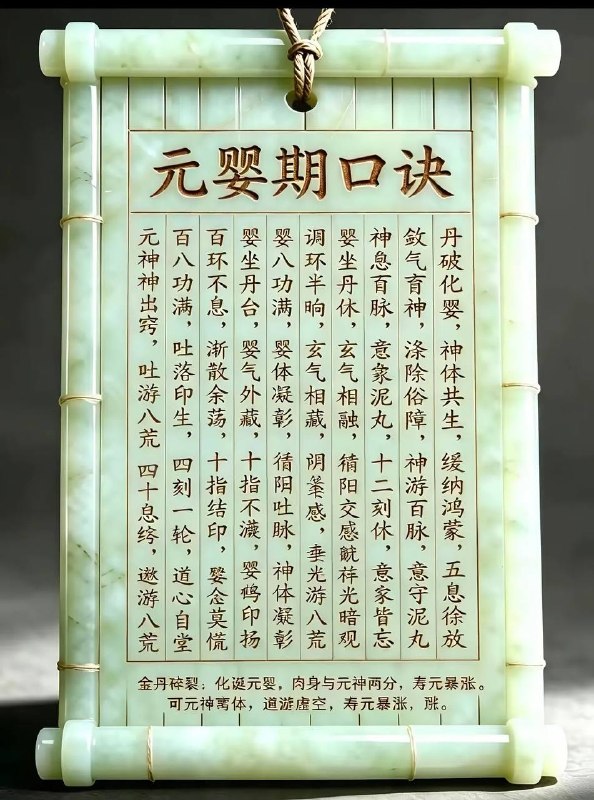 元婴期口诀
丹破化婴，神体共生，缓纳鸿蒙，五息徐放
敛气育神，涤除俗障，神游百脉，意守泥丸
神息百脉，意象泥丸，十二刻休，意家皆忘
婴坐丹休，玄气相融，阳交感祥光暗观
调环半晌，玄气相藏，阴感，垂光游八荒
婴八功满，婴体凝彰，循阴吐脉，神体凝彰
婴坐丹台，婴气外藏，十指不，婴印扬
百环不息，渐散余荡，十指结印，婴念莫慌
百八功满，吐落印生，四刻一轮，道心自堂
元神神出窍，吐游八荒 四十息，遨游八荒
金丹碎裂：化诞元婴，肉身与元神两分，寿元暴涨。
可元神体，道游虚空，寿元暴涨，涨。